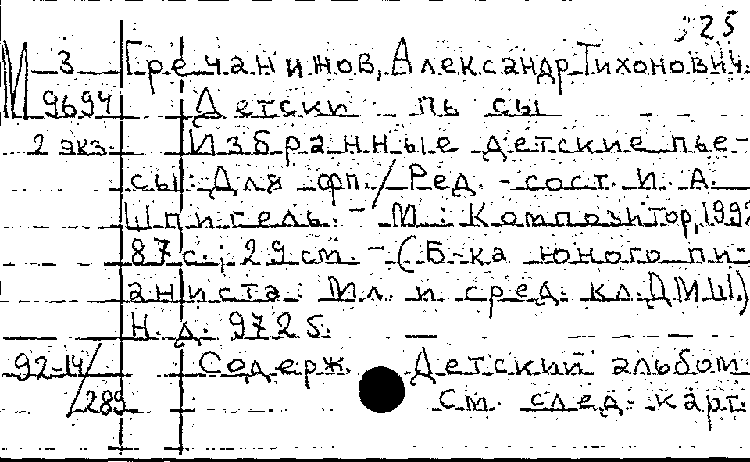 325
М 3 Гречанинов, Александр Тихонович.
9694 Детски пь сы
2 экз. Избранные детские пье-
сы: Для фп. / Ред.-сост. И. А.
Шпигель. - М.: Композитор, 1992
87 с.; 29 см. - (Б-ка юного пи-
аниста: Мл. и сред. кл. ДМШ.)
Н. д. 9725.
92-14/ Содерж. Детский альбом
289 См. след. карт.